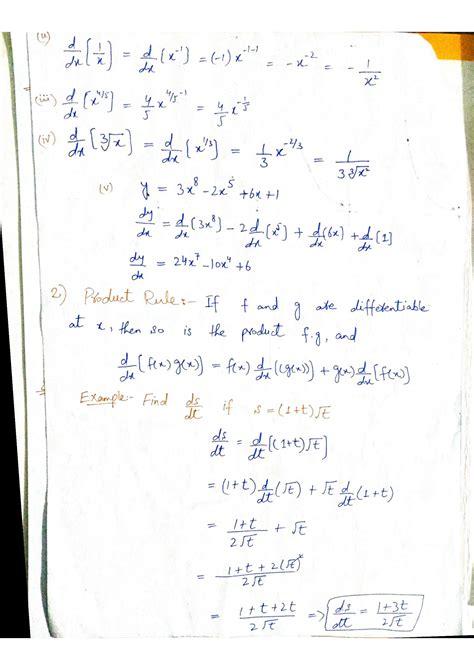 (ii) d/dx [1/x] = d/dx [x⁻¹] = (-1) x⁻¹⁻¹ = -x⁻² = - 1/x²
(iii) d/dx [x^4/5] = 4/5 x^4/5 -1 = 4/5 x^-1/5
(iv) d/dx [3√x] = d/dx [x^1/3] = 1/3 x^-2/3 = 1/(3 3√x²)
(v) y = 3x⁸ - 2x⁵ + 6x + 1
dy/dx = d/dx [3x⁸] - 2 d/dx [x⁵] + d/dx (6x) + d/dx [1]
dy/dx = 24x⁷ - 10x⁴ + 6
2) Product Rule:- If f and g are differentiable
at x, then so is the product f.g, and
d/dx [f(x) g(x)] = f(x) d/dx [(g(x)] + g(x) d/dx [f(x)]
Example:- Find ds/dt if s = (1+t)√t
ds/dt = d/dt [(1+t)√t]
= (1+t) d/dt (√t) + √t d/dt (1+t)
= (1+t)/(2√t) + √t
= (1+t+2(√t)²)/(2√t)
= (1+t+2t)/(2√t) => ds/dt = (1+3t)/(2√t)